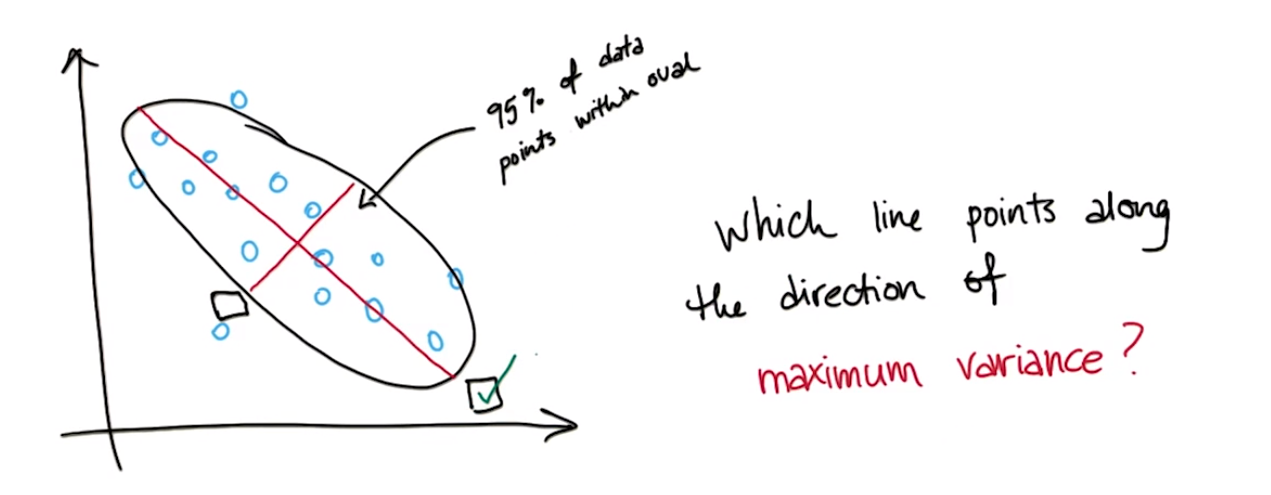 95% of data
points within oval
which line points along
the direction of
maximum variance?